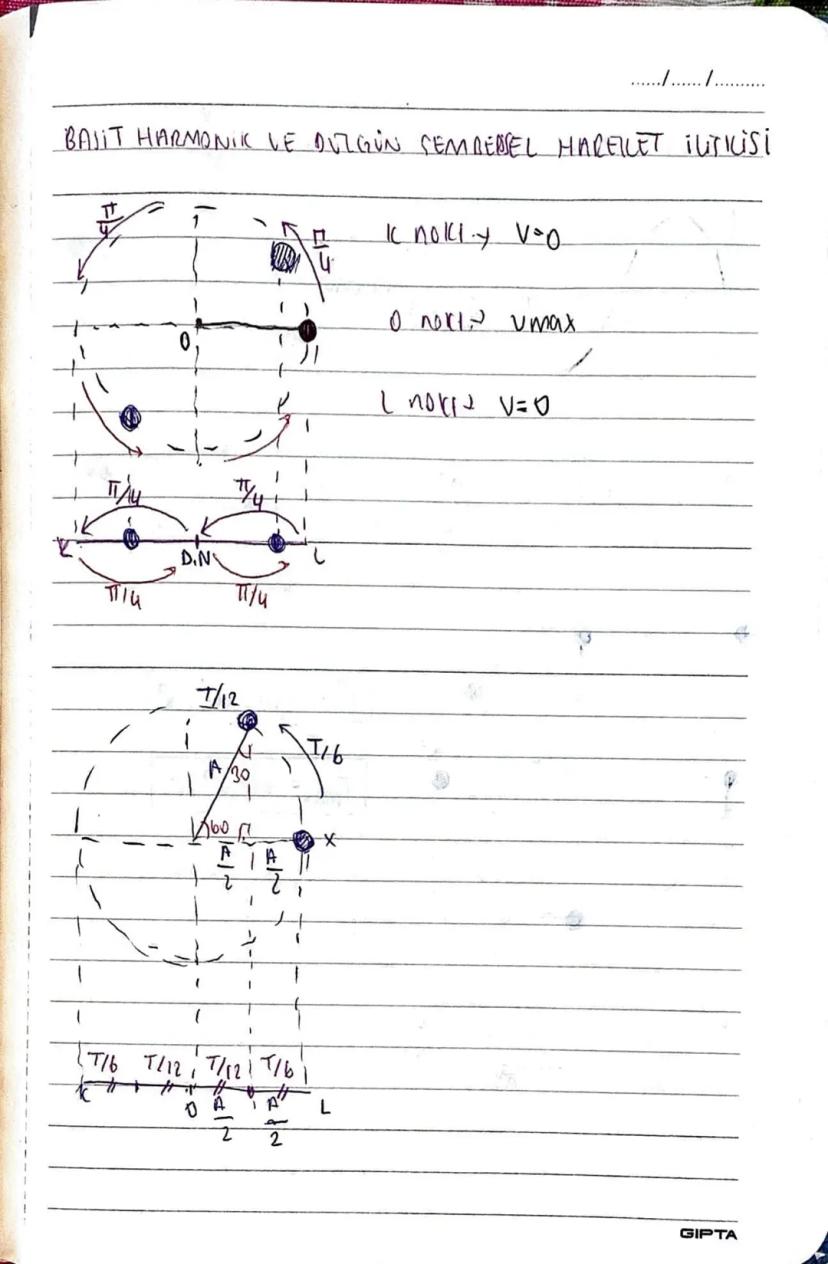 ....../....../..........
BASİT HARMONİK VE DÜZGÜN ÇEMBERSEL HAREKET İLİŞKİSİ
π/4
π/4
K nokt → V=0
O
O nokt → Vmax
L nokt → V=0
π/4 π/4
K D.N L
π/4 π/4
T/12
T/6
A 30
60 X
A/2 A/2
T/6 T/12 T/12 T/6
K O A/2 A/2 L
GIPTA